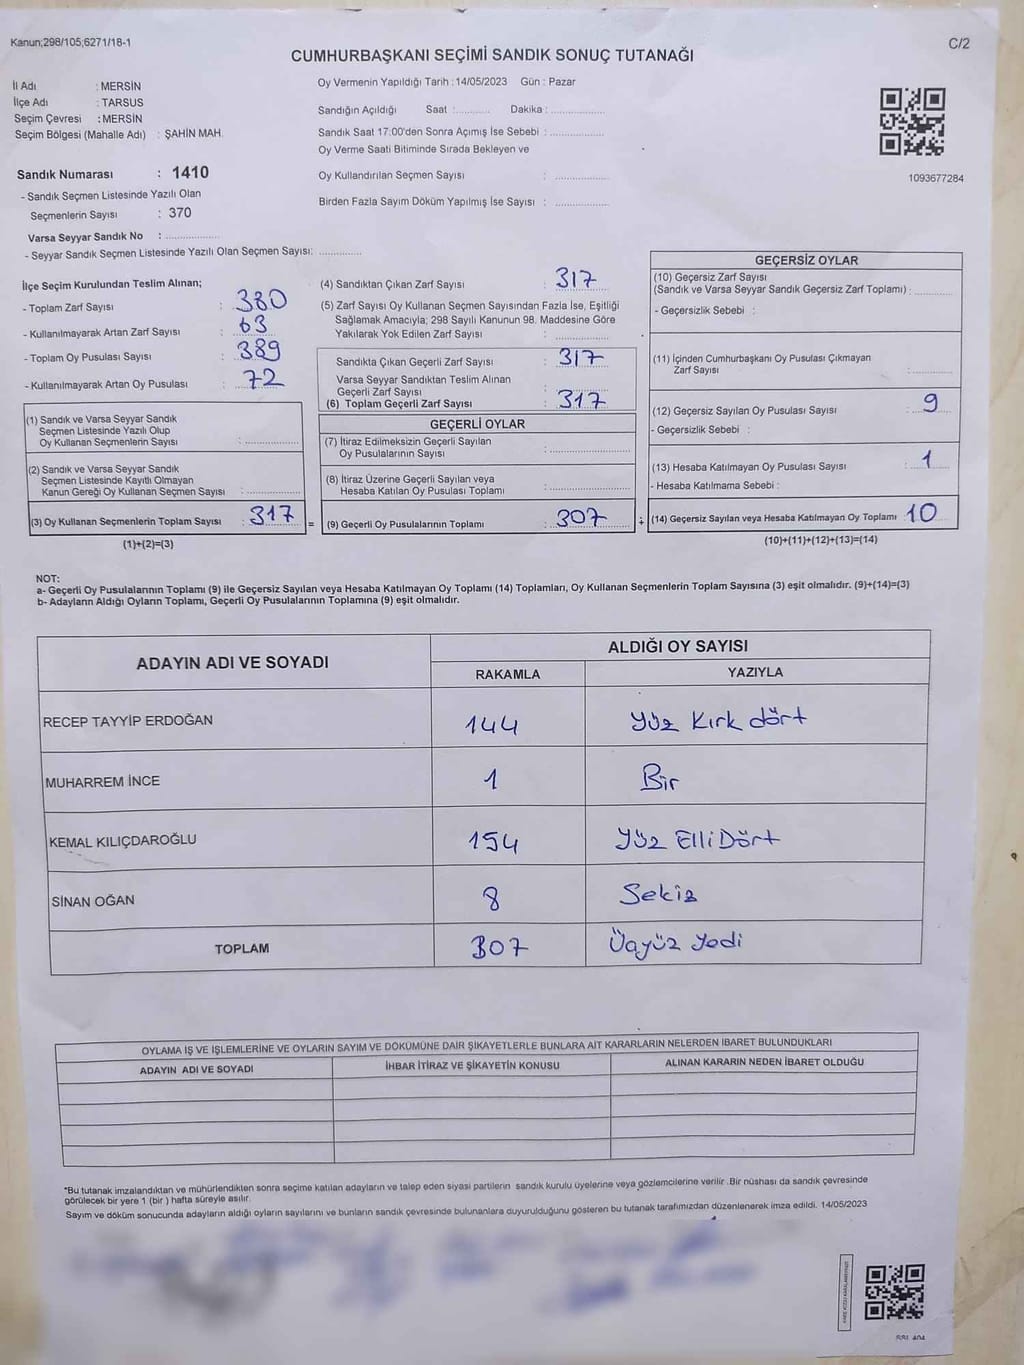 Kanun;298/105;6271/18-1
C/2
CUMHURBAŞKANI SEÇİMİ SANDIK SONUÇ TUTANAĞI
İl Adı : MERSİN
İlçe Adı : TARSUS
Seçim Çevresi : MERSİN
Seçim Bölgesi (Mahalle Adı) : ŞAHİN MAH.
Oy Vermenin Yapıldığı Tarih : 14/05/2023 Gün : Pazar
Sandığın Açıldığı Saat :........... Dakika :................
Sandık Saat 17:00'den Sonra Açımış İse Sebebi :................
Oy Verme Saati Bitiminde Sırada Bekleyen ve
Oy Kullandırılan Seçmen Sayısı : ................
Birden Fazla Sayım Döküm Yapılmış İse Sayısı : ................
1093677284
Sandık Numarası : 1410
- Sandık Seçmen Listesinde Yazılı Olan
Seçmenlerin Sayısı : 370
Varsa Seyyar Sandık No : ................
- Seyyar Sandık Seçmen Listesinde Yazılı Olan Seçmen Sayısı: ............
İlçe Seçim Kurulundan Teslim Alınan;
- Toplam Zarf Sayısı : 380
- Kullanılmayarak Artan Zarf Sayısı : 63
- Toplam Oy Pusulası Sayısı : 389
- Kullanılmayarak Artan Oy Pusulası : 72
(1) Sandık ve Varsa Seyyar Sandık
Seçmen Listesinde Yazılı Olup
Oy Kullanan Seçmenlerin Sayısı : ................
(2) Sandık ve Varsa Seyyar Sandık
Seçmen Listesinde Kayıtlı Olmayan
Kanun Gereği Oy Kullanan Seçmen Sayısı : ................
(3) Oy Kullanan Seçmenlerin Toplam Sayısı : 317
(1)+(2)=(3)
(4) Sandıktan Çıkan Zarf Sayısı : 317
(5) Zarf Sayısı Oy Kullanan Seçmen Sayısından Fazla İse, Eşitliği
Sağlamak Amacıyla; 298 Sayılı Kanunun 98. Maddesine Göre
Yakılarak Yok Edilen Zarf Sayısı : ................
Sandıkta Çıkan Geçerli Zarf Sayısı : 317
Varsa Seyyar Sandıktan Teslim Alınan
Geçerli Zarf Sayısı : ................
(6) Toplam Geçerli Zarf Sayısı : 317
GEÇERLİ OYLAR
(7) İtiraz Edilmeksizin Geçerli Sayılan
Oy Pusulalarının Sayısı : ................
(8) İtiraz Üzerine Geçerli Sayılan veya
Hesaba Katılan Oy Pusulası Toplamı : ................
= (9) Geçerli Oy Pusulalarının Toplamı : 307 +
GEÇERSİZ OYLAR
(10) Geçersiz Zarf Sayısı
(Sandık ve Varsa Seyyar Sandık Geçersiz Zarf Toplamı) : ............
- Geçersizlik Sebebi :
(11) İçinden Cumhurbaşkanı Oy Pusulası Çıkmayan
Zarf Sayısı : ............
(12) Geçersiz Sayılan Oy Pusulası Sayısı : 9
- Geçersizlik Sebebi :
(13) Hesaba Katılmayan Oy Pusulası Sayısı : 1
- Hesaba Katılmama Sebebi :
(14) Geçersiz Sayılan veya Hesaba Katılmayan Oy Toplamı : 10
(10)+(11)+(12)+(13)=(14)
NOT:
a- Geçerli Oy Pusulalarının Toplamı (9) ile Geçersiz Sayılan veya Hesaba Katılmayan Oy Toplamı (14) Toplamları, Oy Kullanan Seçmenlerin Toplam Sayısına (3) eşit olmalıdır. (9)+(14)=(3)
b- Adayların Aldığı Oyların Toplamı, Geçerli Oy Pusulalarının Toplamına (9) eşit olmalıdır.
ADAYIN ADI VE SOYADI
ALDIĞI OY SAYISI
RAKAMLA YAZIYLA
RECEP TAYYİP ERDOĞAN 144 Yüz Kırk dört
MUHARREM İNCE 1 Bir
KEMAL KILIÇDAROĞLU 154 Yüz Elli Dört
SİNAN OĞAN 8 Sekiz
TOPLAM 307 Üçyüz Yedi
OYLAMA İŞ VE İŞLEMLERİNE VE OYLARIN SAYIM VE DÖKÜMÜNE DAİR ŞİKAYETLERLE BUNLARA AİT KARARLARIN NELERDEN İBARET BULUNDUKLARI
ADAYIN ADI VE SOYADI İHBAR İTİRAZ VE ŞİKAYETİN KONUSU ALINAN KARARIN NEDEN İBARET OLDUĞU
*Bu tutanak imzalandıktan ve mühürlendikten sonra seçime katılan adayların ve talep eden siyasi partilerin sandık kurulu üyelerine veya gözlemcilerine verilir .Bir nüshası da sandık çevresinde
görülecek bir yere 1 (bir ) hafta süreyle asılır.
Sayım ve döküm sonucunda adayların aldığı oyların sayılarını ve bunların sandık çevresinde bulunanlara duyurulduğunu gösteren bu tutanak tarafımızdan düzenlenerek imza edildi. 14/05/2023